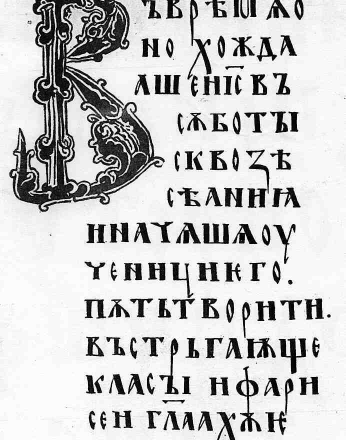 ВЪВРѢМѦО
НО ХОЖДА
АШЕ И҃С ВЪ
СѪБОТЪІ
СКВОЗѢ
СѢАНИꙖ
ИНАЧѦШѦОУ
ЧЕНИЦИѤГО.
ПѪТЬТВОРИТИ.
ВЪСТРЬГАѬЩЕ
КЛАСЪІ ИФАРИ
СЕИ ГЛ҃ААХѪѤ